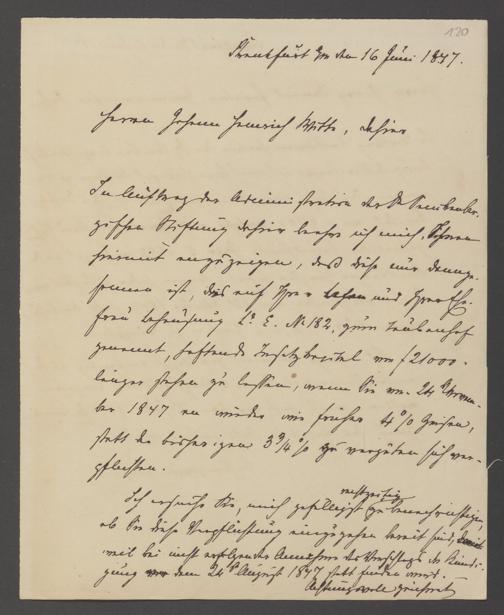 120
Frankfurt a/m den 16 Juni 1847.
Herrn Johann Heinrich Witte, dahier
Im Auftrag der Administration der Dr. Senckenber-
gischen Stiftung dahier beehre ich mich, Ihnen
hiermit anzuzeigen, daß diese nur dann ge-
sonnen ist, das auf Ihrer und Ihrer Ehe-
frau Behausung Lr. E. No 182, zum Taubenhof
genannt, haftende Insatzkapital von f 21000.-
länger stehen zu lassen, wenn Sie vom 24 Novem-
ber 1847 an wieder wie früher 4 % Zinsen,
statt der bisherigen 3 3/4 % zu vergüten sich ver-
pflichten.
Ich ersuche Sie, mich gefälligst rechtzeitig zu benachrichtigen,
ob Sie diese Verpflichtung einzugehen bereit sind,
weil bei nicht erfolgender Annahme des Vorschlags die Kündi-
gung den 24 August 1847 statt finden wird.
Achtungsvoll zeichnet